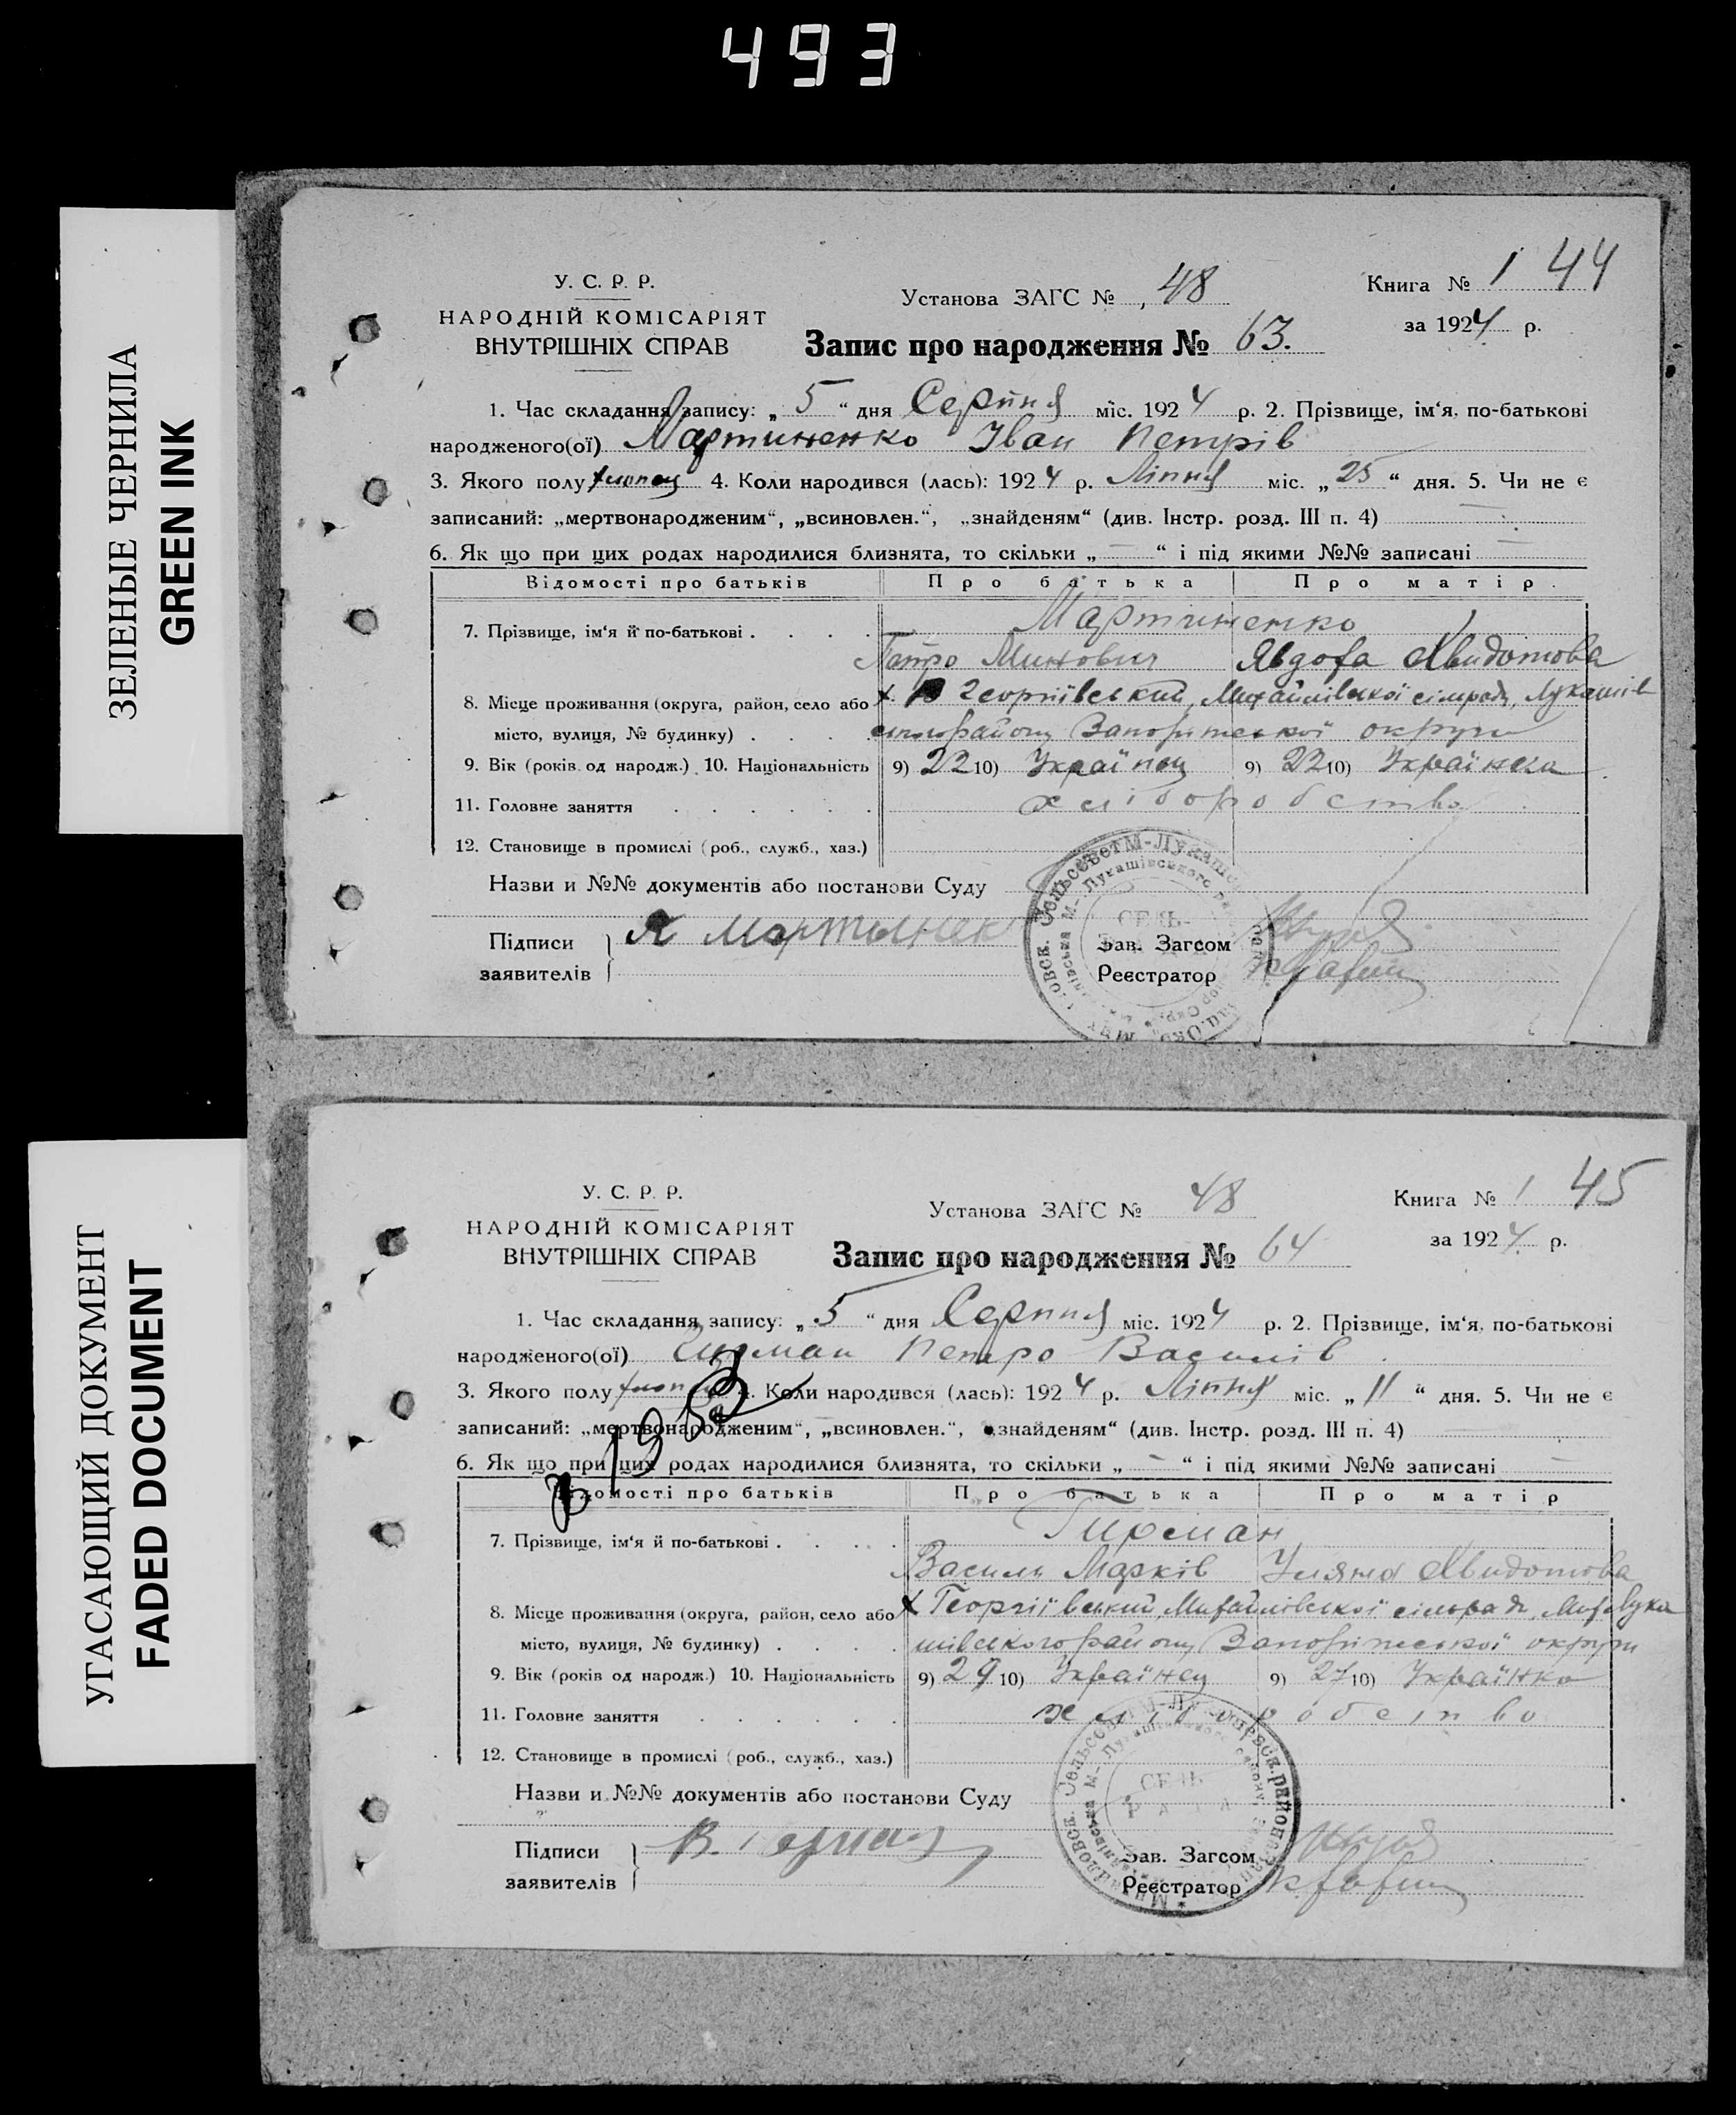 493
ЗЕЛЕНЫЕ ЧЕРНИЛА
GREEN INK
У. С. Р. Р.
НАРОДНІЙ КОМІСАРІЯТ
ВНУТРІШНІХ СПРАВ
Установа ЗАГС № 48
Книга № 1 44
за 1924 р.
Запис про народження № 63.
1. Час складання запису: „ 5 “ дня Серпня міс. 1924 р. 2. Прізвище, ім‘я, по-батькові
народженого(ої) Мартиненко Іван Петрів
3. Якого полу хлопец 4. Коли народився (лась): 1924 р. Ліпня міс. „ 25 “ дня. 5. Чи не є
записаний: „мертвонародженим“, „всиновлен.“, „знайденям“ (див. Інстр. розд. III п. 4)
6. Як що при цих родах народилися близнята, то скільки „ — “ і під якими №№ записані —
Відомості про батьків Про батька Про матір
7. Прізвище, ім‘я й по-батькові . . . . Мартиненко
Петро Минович Явдоха Хвидотова
8. Місце проживання (округа, район, село або х. Георгіївський, Михайлівської сілради, Лукашів
місто, вулиця, № будинку) . . . . району Запоріжської округи
9. Вік (років од народж.) 10. Національність 9) 22 10) Українец 9) 22 10) Українка
11. Головне заняття . . . . . . хліборобство
12. Становище в промислі (роб., служб., хаз.)
Назви и №№ документів або постанови Суду
Підписи заявителів
Зав. Загсом
Реєстратор
УГАСАЮЩИЙ ДОКУМЕНТ
FADED DOCUMENT
У. С. Р. Р.
НАРОДНІЙ КОМІСАРІЯТ
ВНУТРІШНІХ СПРАВ
Установа ЗАГС № 48
Книга № 1 45
за 1924 р.
Запис про народження № 64
1. Час складання запису: „ 5 “ дня Серпня міс. 1924 р. 2. Прізвище, ім‘я, по-батькові
народженого(ої) Петро Василів
3. Якого полу хлопец 4. Коли народився (лась): 1924 р. Ліпня міс. „ 11 “ дня. 5. Чи не є
записаний: „мертвонародженим“, „всиновлен.“, „знайденям“ (див. Інстр. розд. III п. 4)
6. Як що при цих родах народилися близнята, то скільки „ — “ і під якими №№ записані —
Відомості про батьків Про батька Про матір
7. Прізвище, ім‘я й по-батькові . . . . Гирман
Василь Марків Уляна Хвидотова
8. Місце проживання (округа, район, село або х Георгіївський, Михайлівської сільради, Мих Лука
місто, вулиця, № будинку) . . . . шівського району Запоріжської округи
9. Вік (років од народж.) 10. Національність 9) 29 10) Українец 9) 27 10) Українка
11. Головне заняття . . . . . . хліборобство
12. Становище в промислі (роб., служб., хаз.)
Назви и №№ документів або постанови Суду
Підписи заявителів
Зав. Загсом
Реєстратор